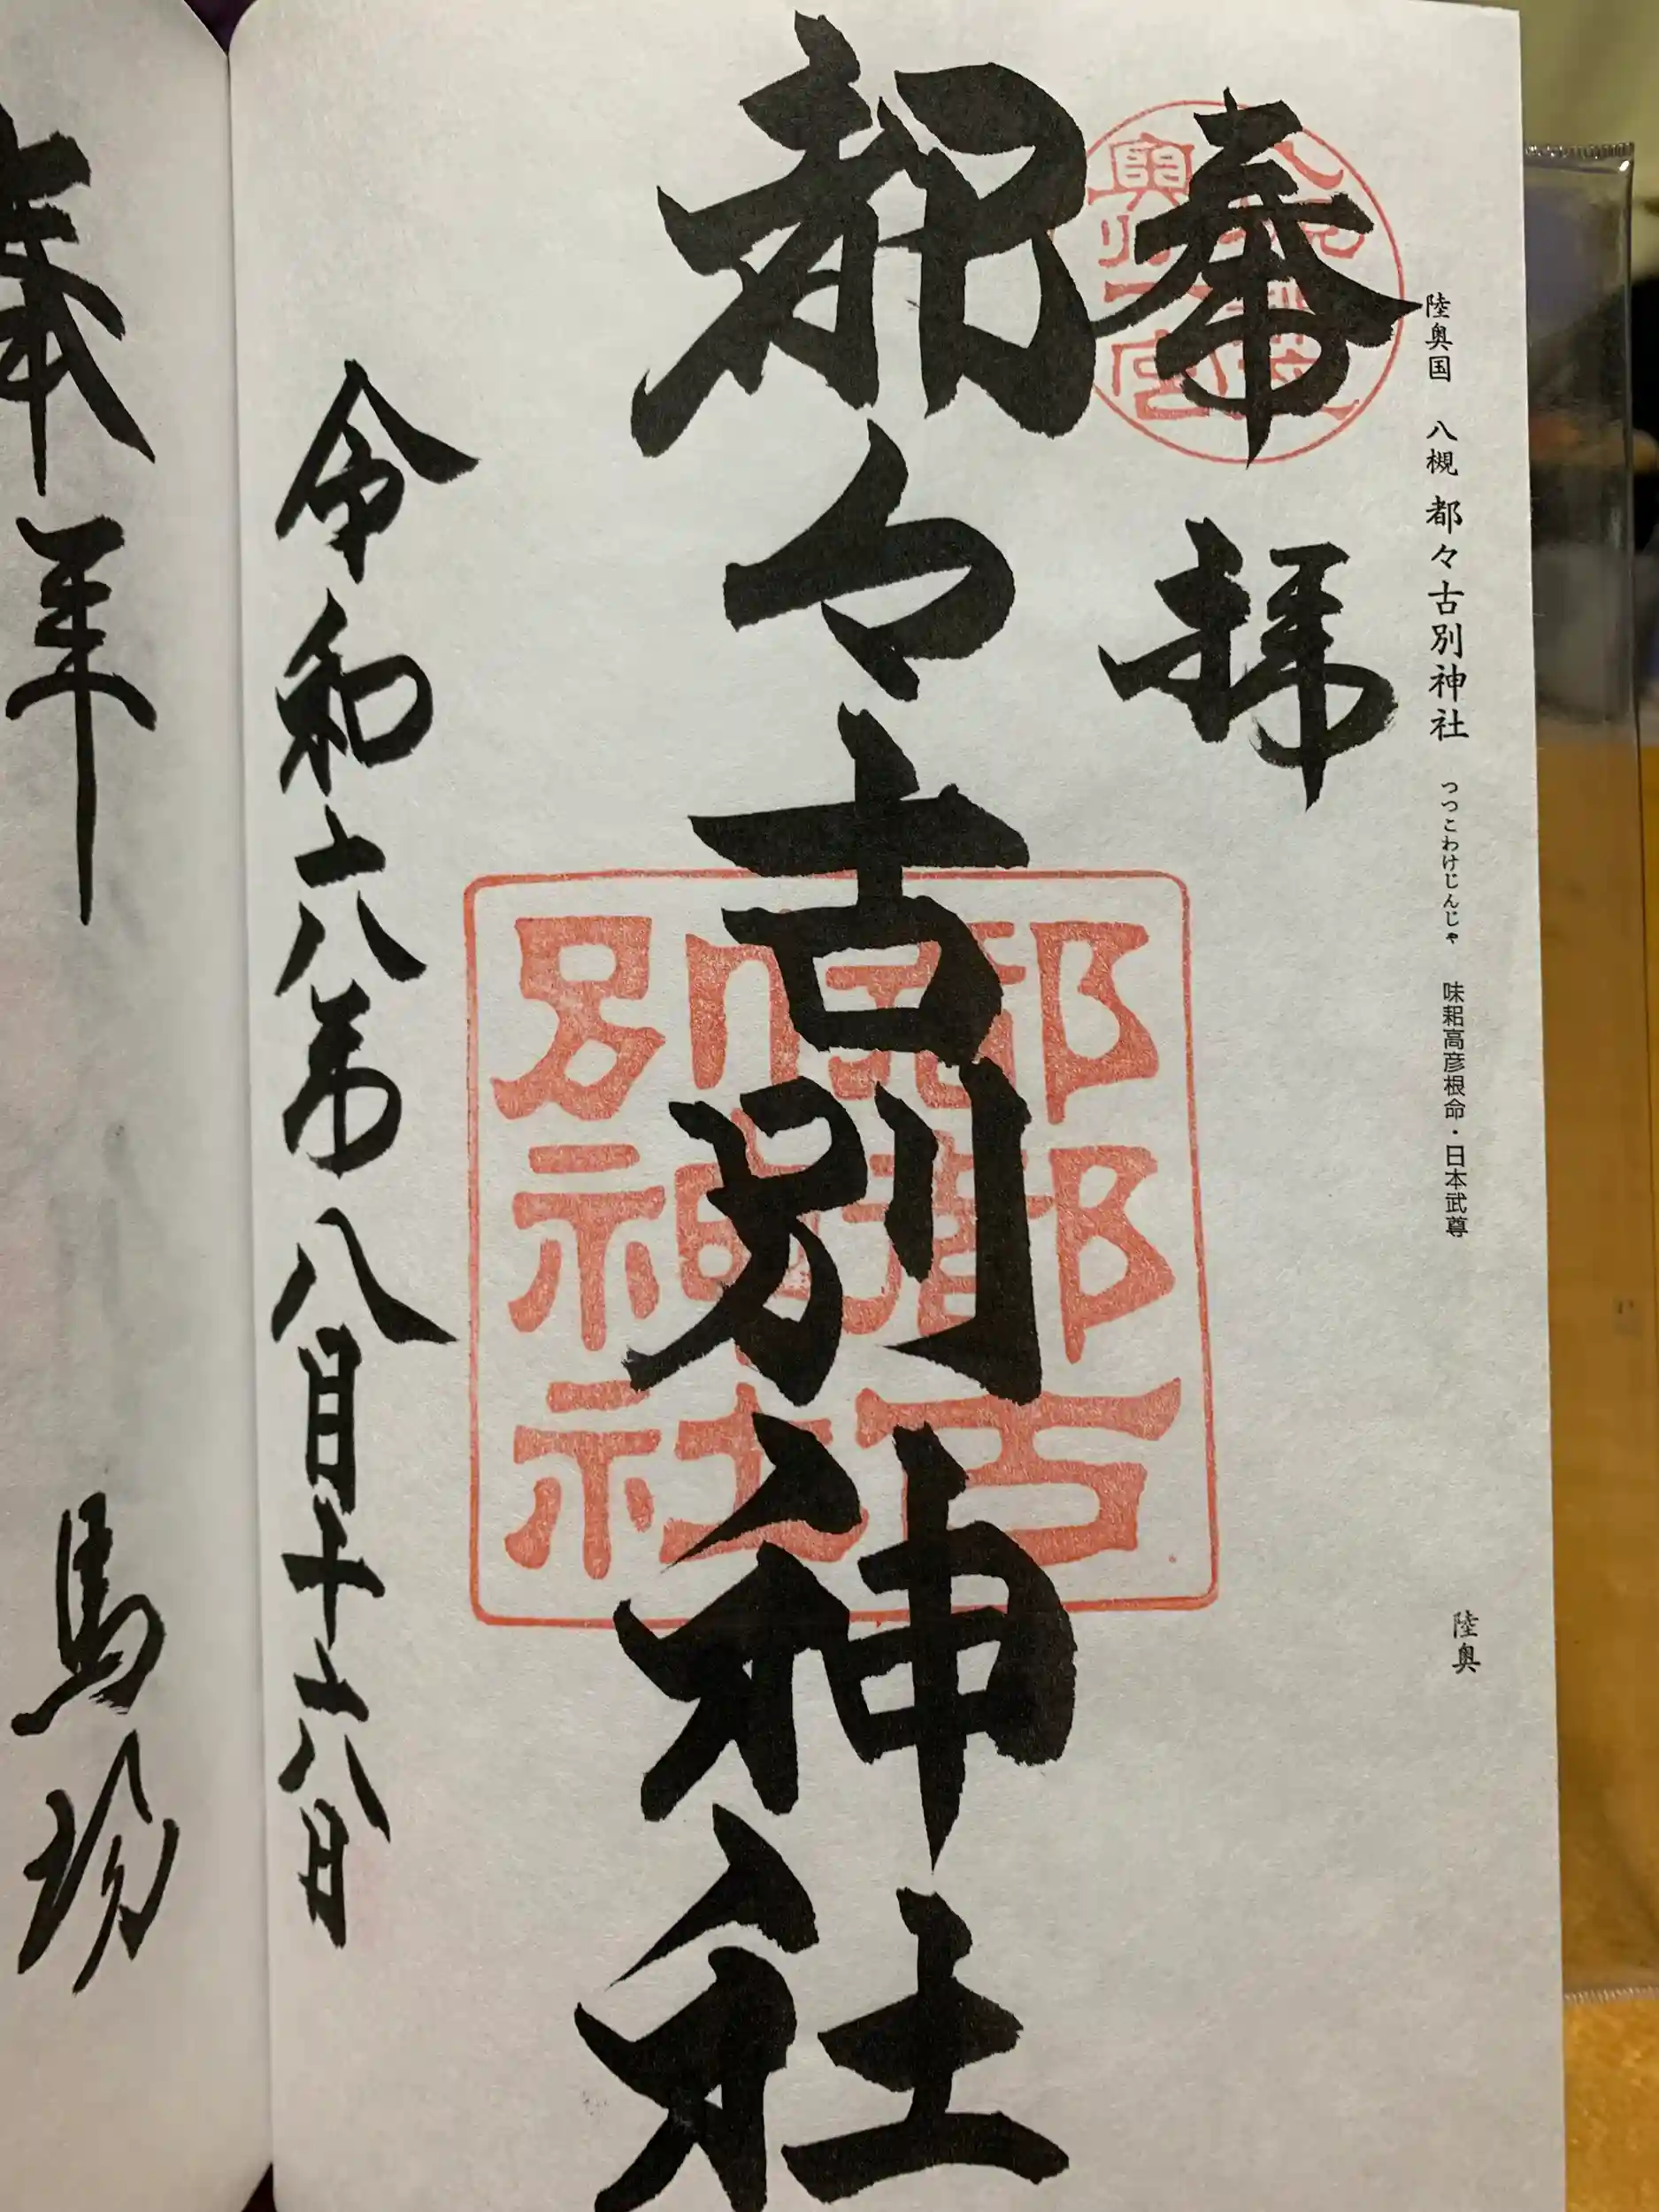 陸奥国 八槻 都々古別神社 つつこわけじんじゃ 味耜高彦根命・日本武尊
陸奥
奉拝
都々古別神社
都都古
別神社
奥州一宮
令和六年八月十六日
奉拝
馬場